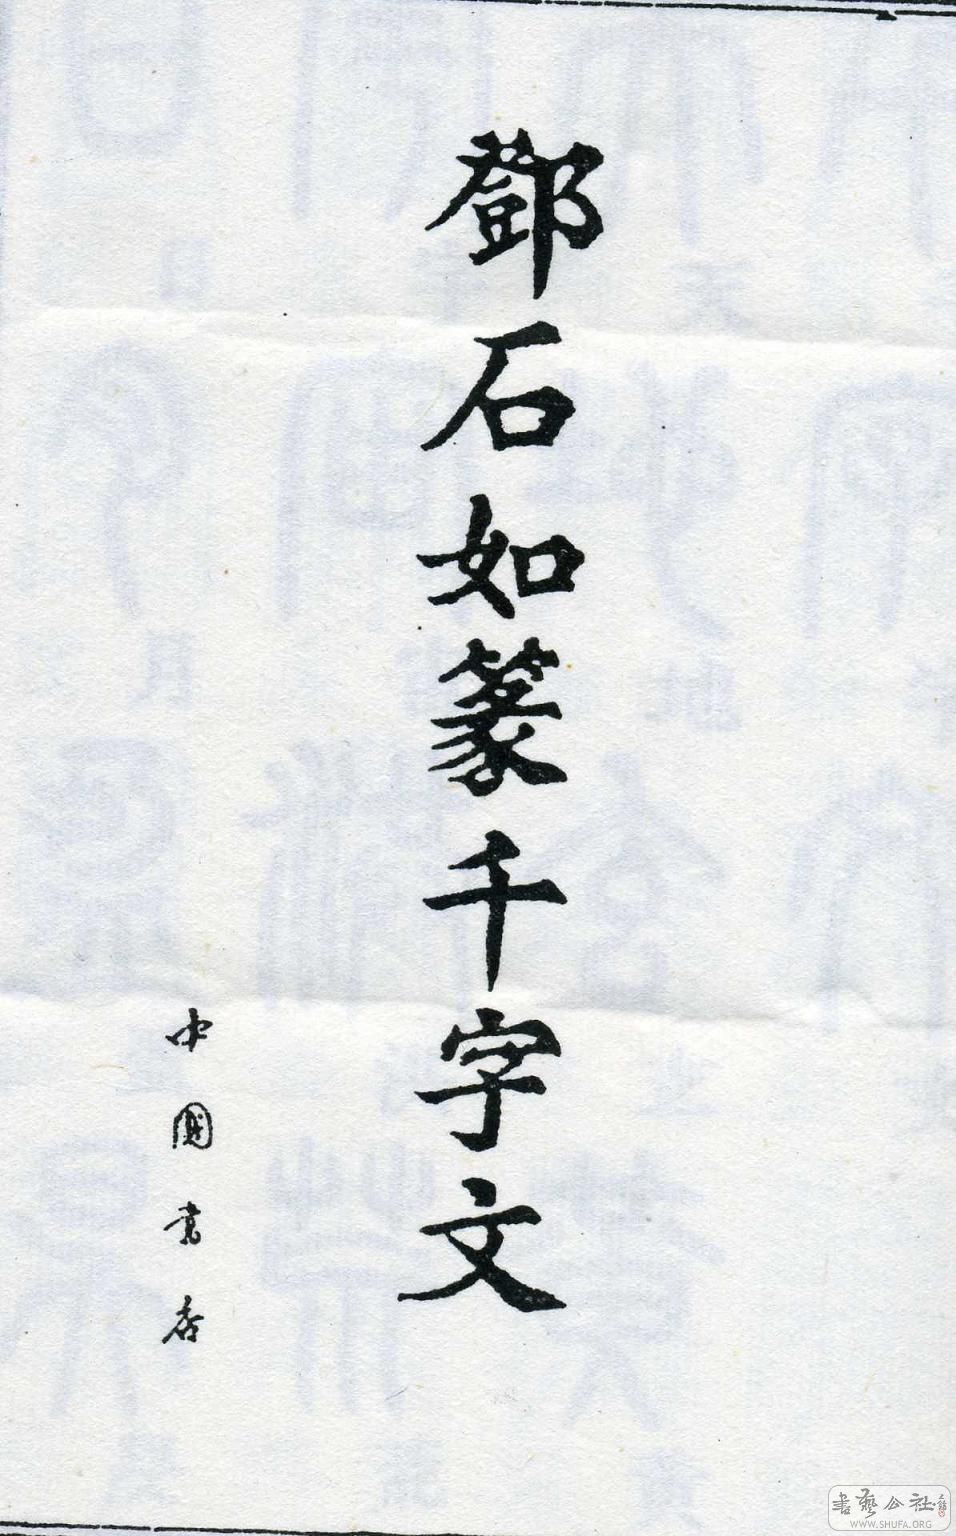 鄧石如篆千字文
中國書店
書藝公社
WWW.SHUFA.ORG